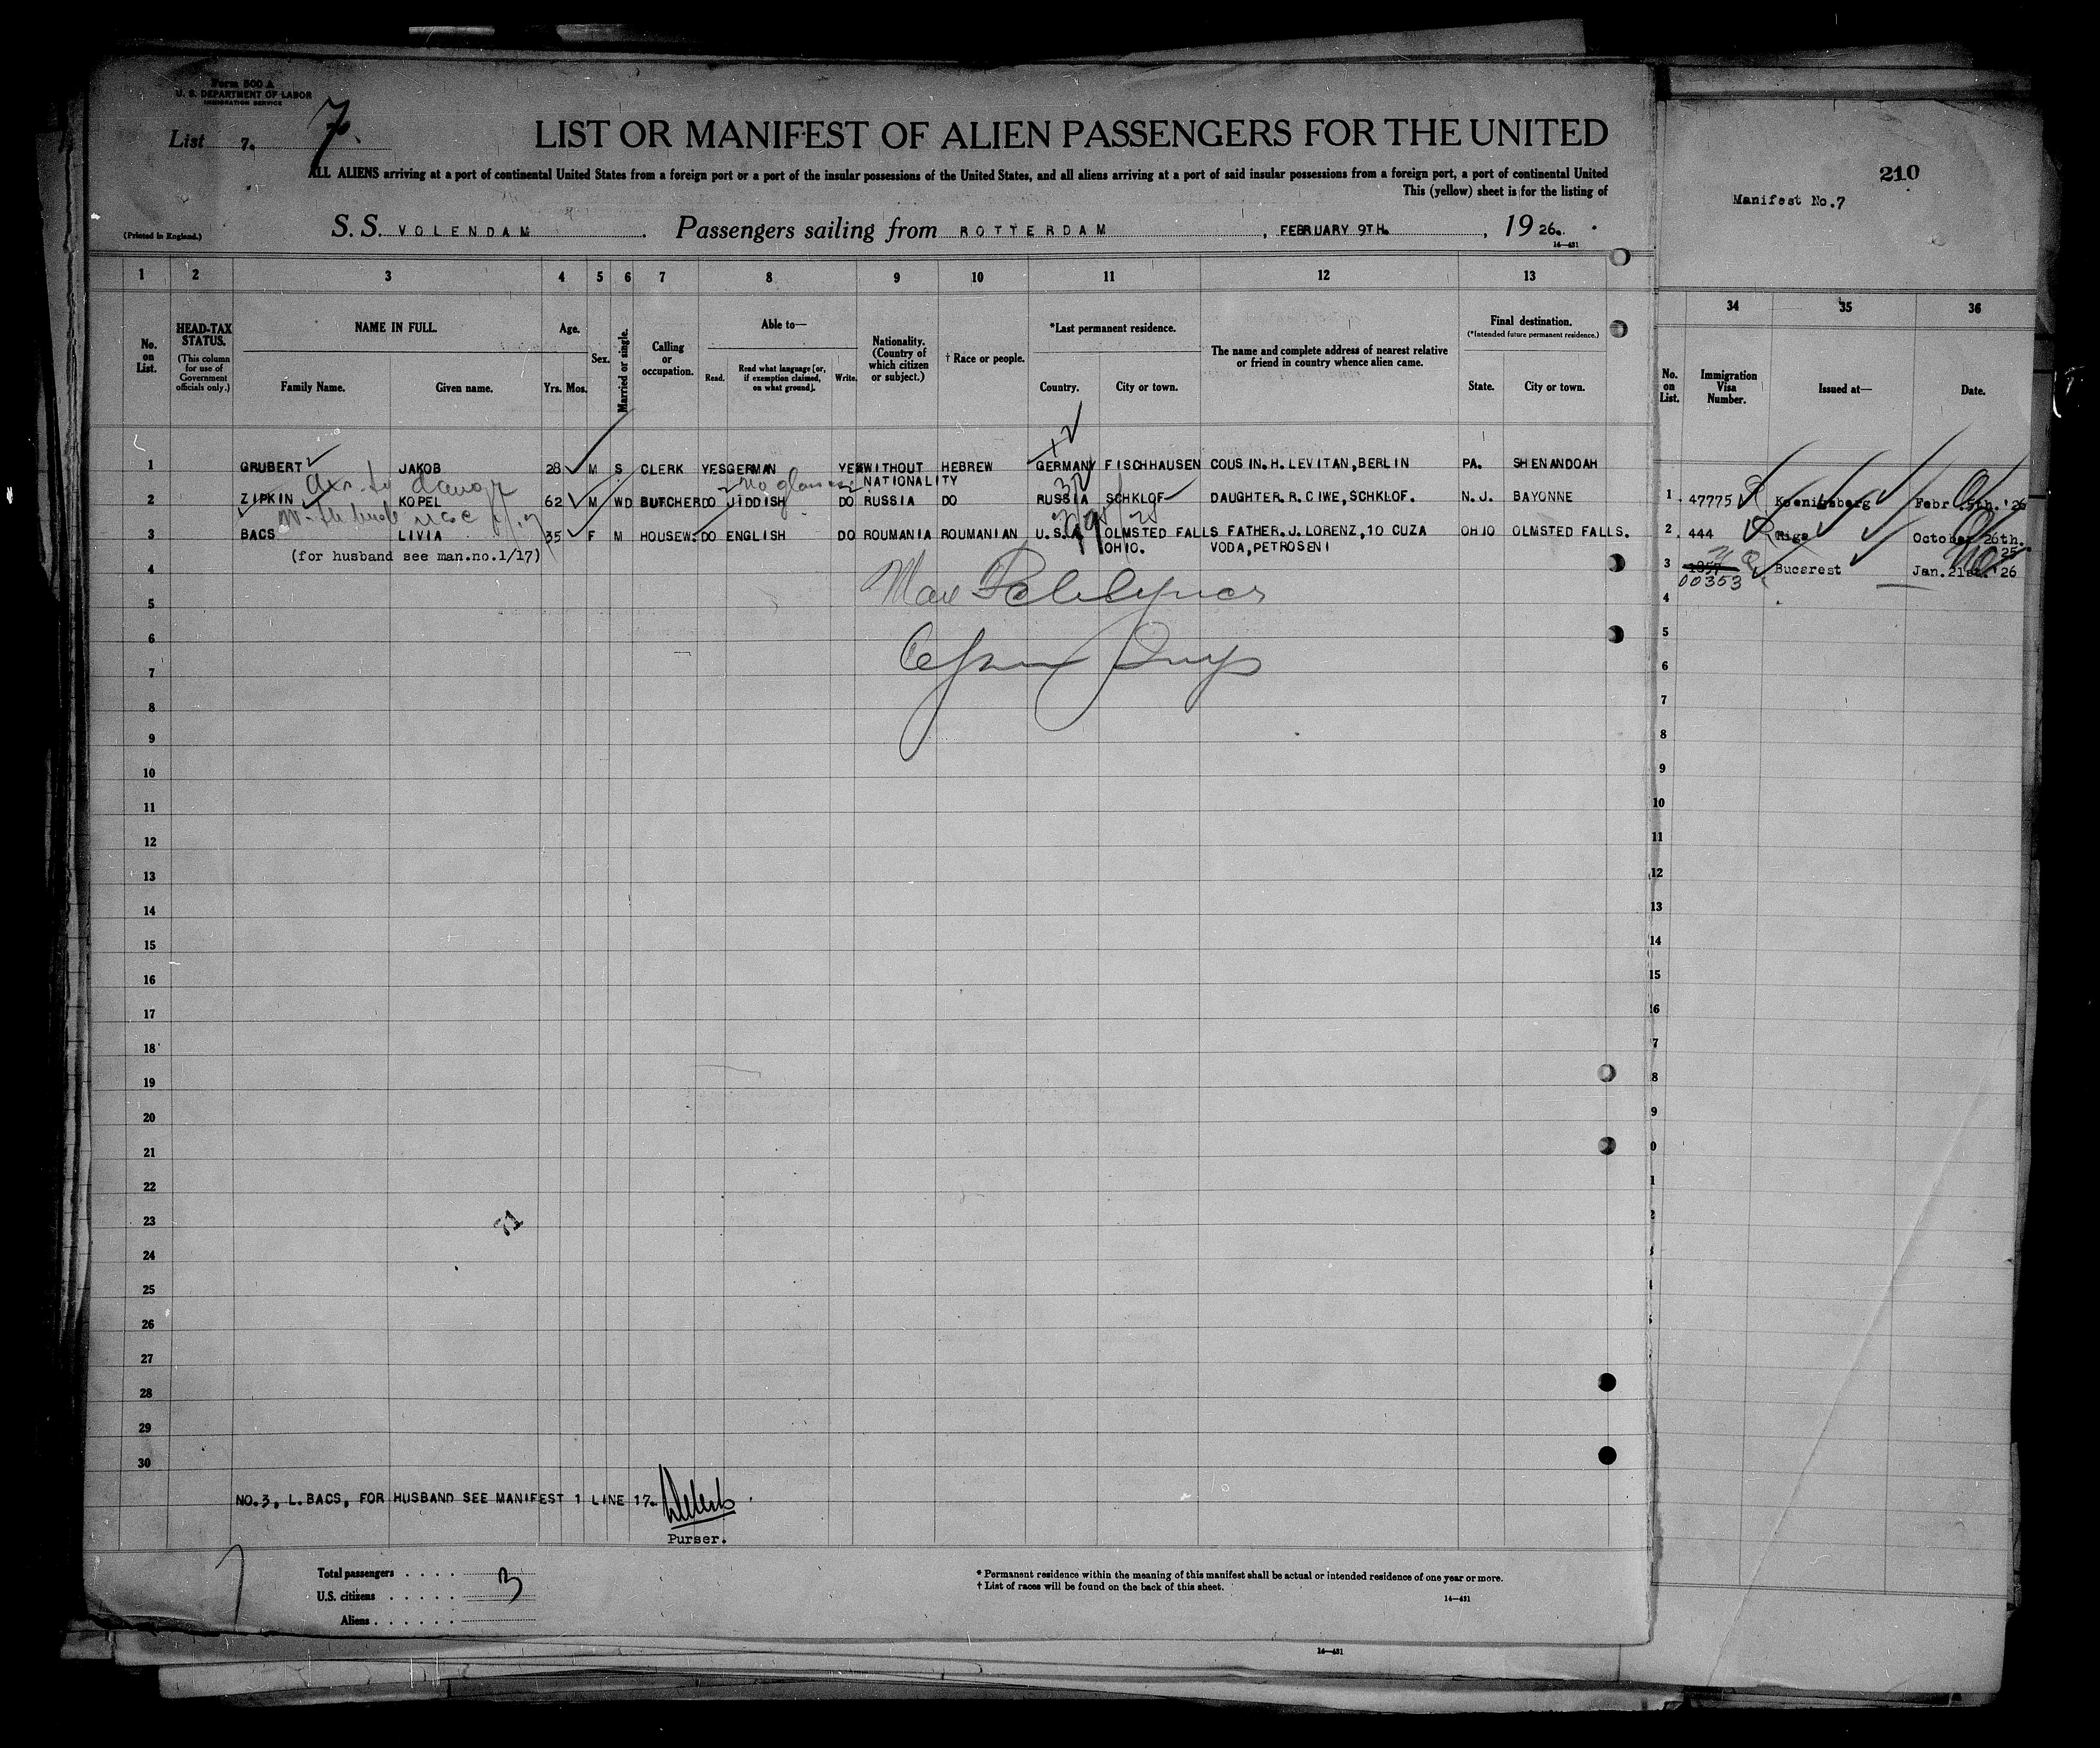 Form 500 A
U. S. DEPARTMENT OF LABOR
IMMIGRATION SERVICE
List 7. 7.
LIST OR MANIFEST OF ALIEN PASSENGERS FOR THE UNITED
ALL ALIENS arriving at a port of continental United States from a foreign port or a port of the insular possessions of the United States, and all aliens arriving at a port of said insular possessions from a foreign port, a port of continental United
This (yellow) sheet is for the listing of
(Printed in England.)
S. S. VOLENDAM. Passengers sailing from ROTTERDAM, FEBRUARY 9TH., 1926.
14—431
1 2 3 4 5 6 7 8 9 10 11 12 13
No. on List.
HEAD-TAX STATUS.
(This column for use of Government officials only.)
NAME IN FULL.
Family Name. Given name.
Age.
Yrs. Mos.
Sex.
Married or single.
Calling or occupation.
Able to—
Read. Read what language [or, if exemption claimed, on what ground]. Write.
Nationality. (Country of which citizen or subject.)
† Race or people.
*Last permanent residence.
Country. City or town.
The name and complete address of nearest relative or friend in country whence alien came.
Final destination.
(*Intended future permanent residence.)
State. City or town.
1 GRUBERT JAKOB 28 M S CLERK YES GERMAN YES WITHOUT HEBREW GERMANY FISCHHAUSEN COUSIN.H.LEVITAN,BERLIN PA. SHENANDOAH
NATIONALITY
no glasses
2 ZIPKIN KOPEL 62 M WD BUTCHER DO JIDDISH DO RUSSIA DO RUSSIA SCHKLOF DAUGHTER.R.CIWE,SCHKLOF. N.J. BAYONNE
3 BACS LIVIA 35 F M HOUSEW. DO ENGLISH DO ROUMANIA ROUMANIAN U.S.A. OLMSTED FALLS FATHER.J.LORENZ,10 CUZA OHIO OLMSTED FALLS.
(for husband see man.no.1/17) OHIO. VODA,PETROSENI
4
5
6
7
8
9
10
11
12
13
14
15
16
17
18
19
20
21
22
23
24
25
26
27
28
29
30
71
NO.3, L.BACS, FOR HUSBAND SEE MANIFEST 1 LINE 17.
Purser.
Total passengers . . . . 3
U.S. citizens . . . . .
Aliens . . . . . .
* Permanent residence within the meaning of this manifest shall be actual or intended residence of one year or more.
† List of races will be found on the back of this sheet.
14—431
14—431
210
Manifest No.7
34 35 36
No. on List.
Immigration Visa Number.
Issued at—
Date.
1 47775 Koenigsberg Febr.5th.'26
2 444 Riga October 26th. 25
3 00353 Bucarest Jan.21st.'26
4
5
6
7
8
9
10
11
12
13
14
15
16
7
8
9
0
1
2